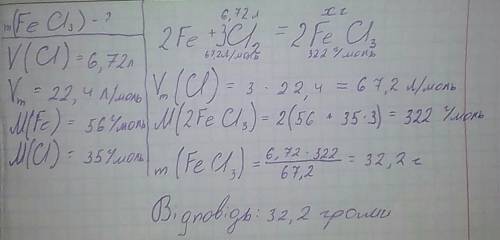 m(FeCl₃) - ?
V(Cl) = 6,72л
Vm = 22,4 л/моль
M(Fe) = 56 г/моль
M(Cl) = 35 г/моль
6,72л xг
2Fe + 3Cl₂ = 2FeCl₃
67,2л/моль 322 г/моль
Vm(Cl) = 3 · 22,4 = 67,2 л/моль
M(2FeCl₃) = 2(56 + 35·3) = 322 г/моль
m(FeCl₃) = 6,72·322/67,2 = 32,2 г
Відповідь: 32,2 грами